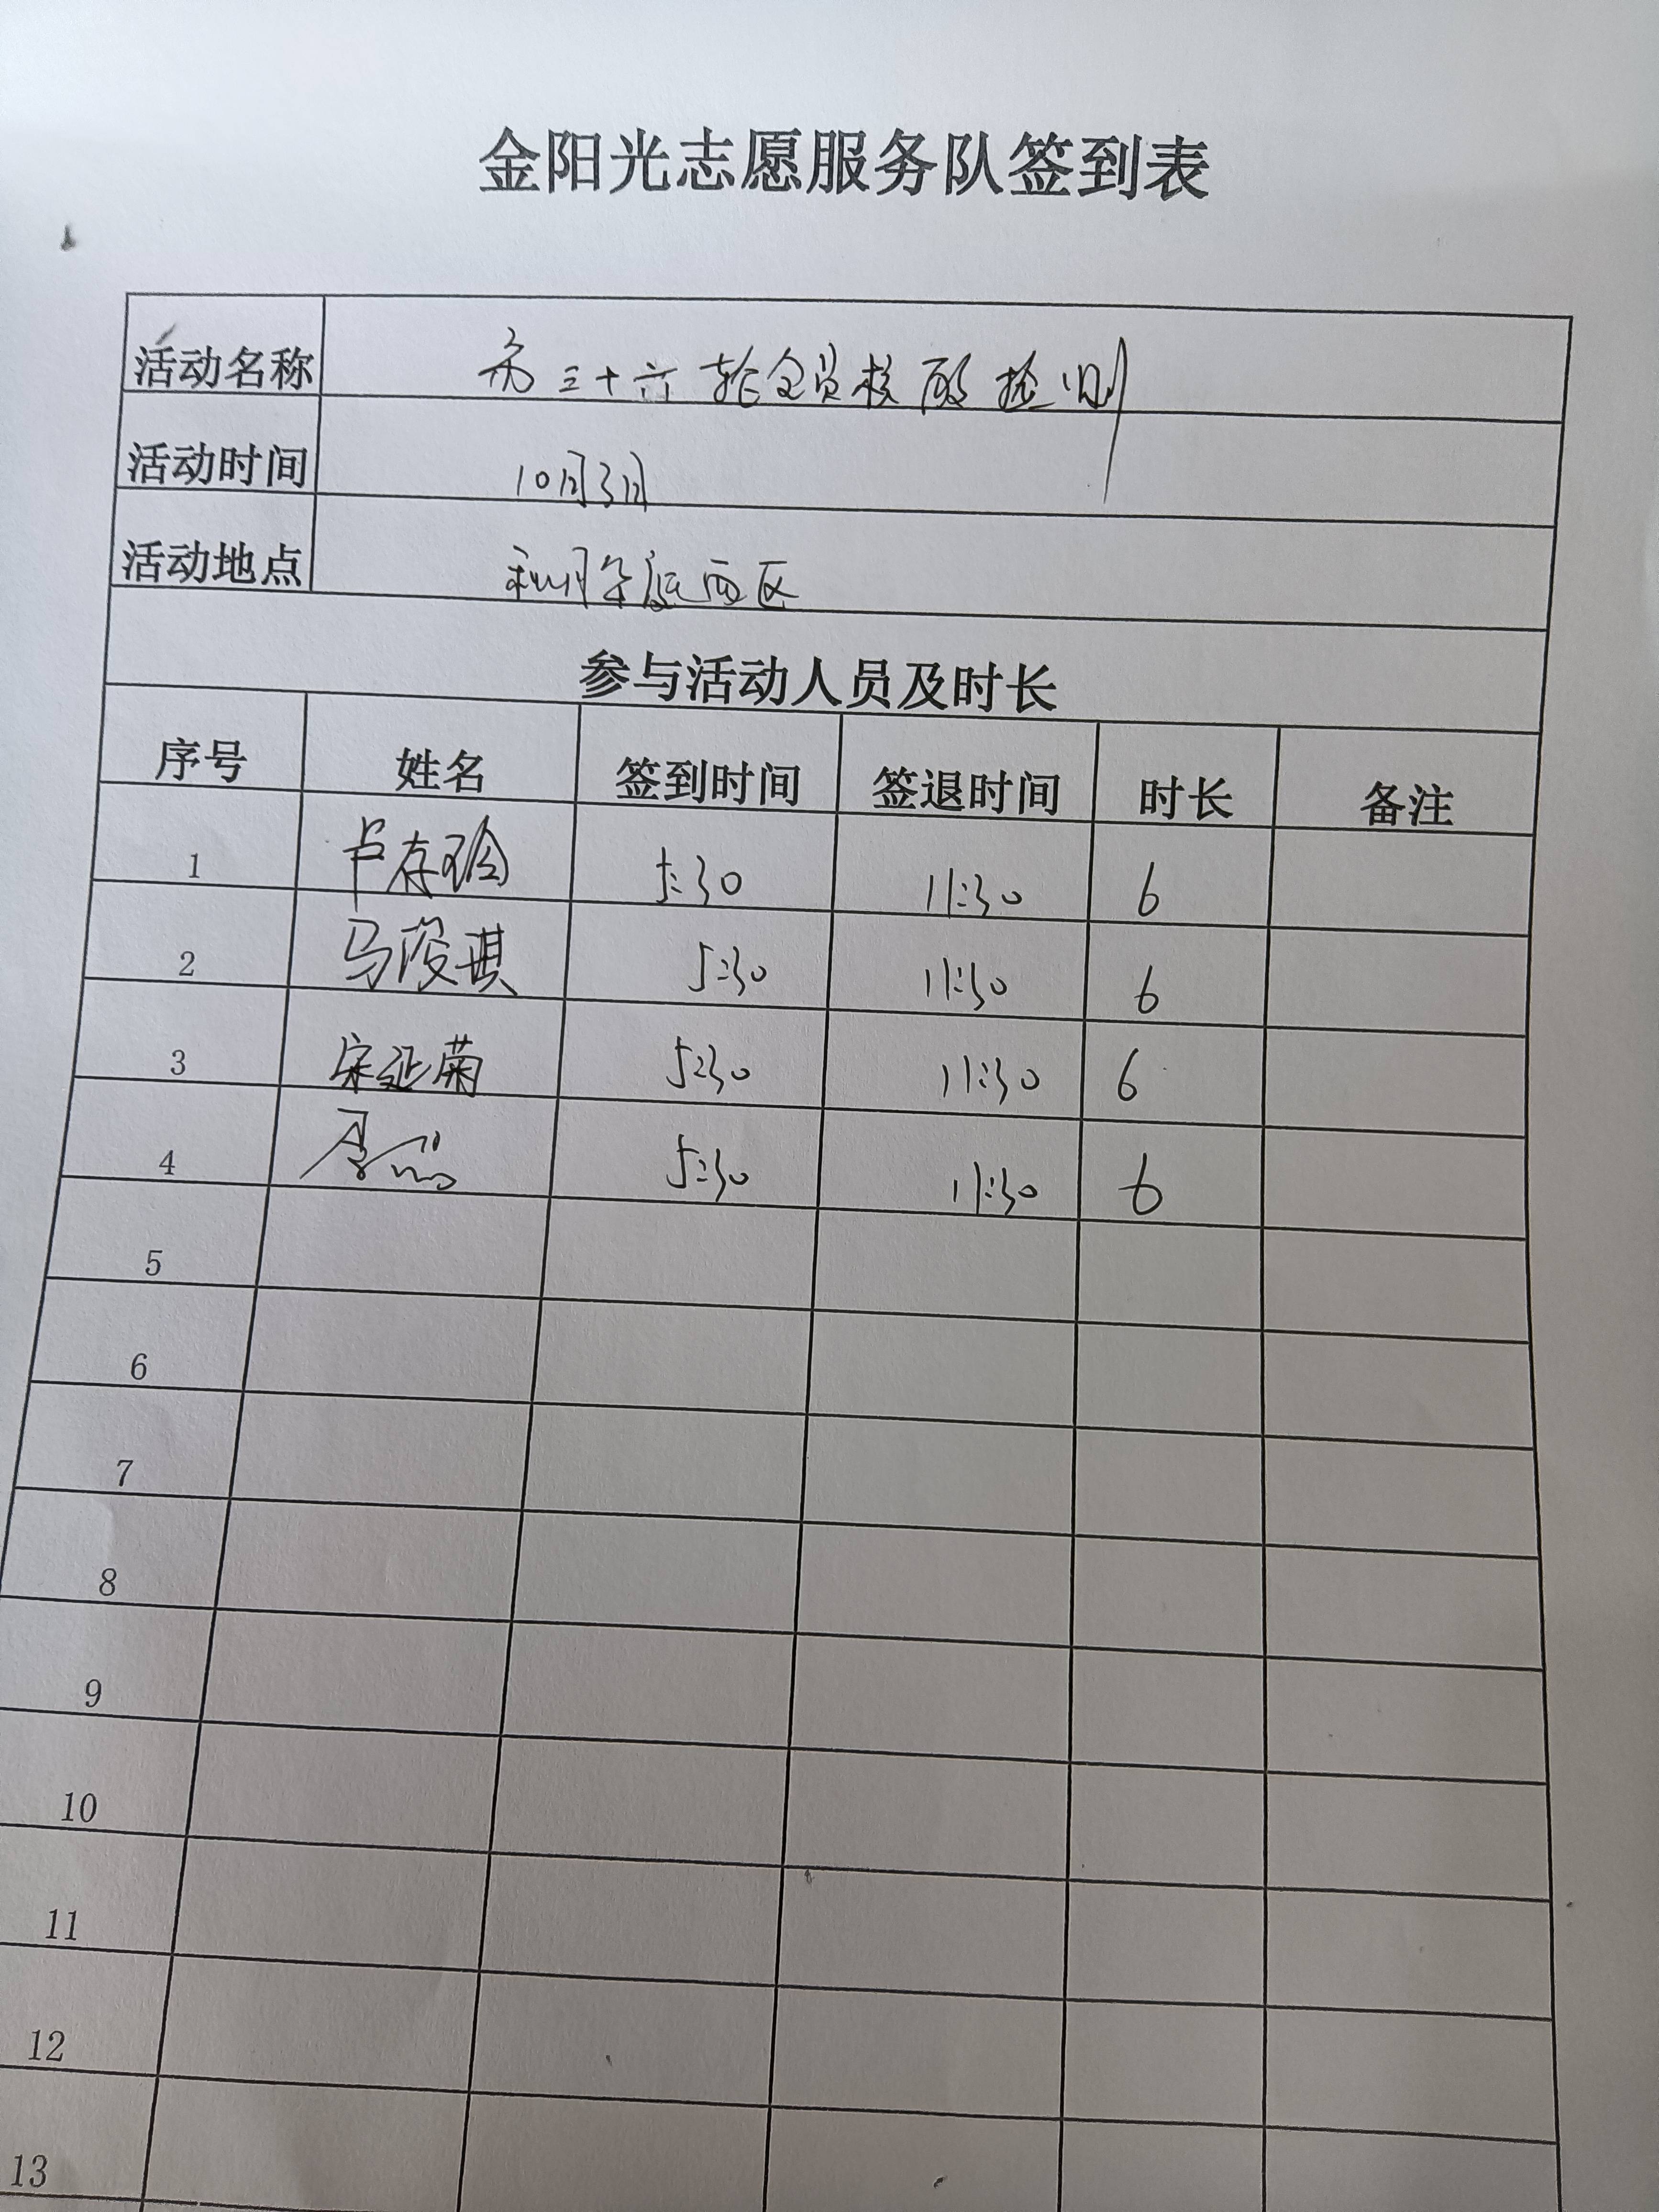 金阳光志愿服务队签到表
活动名称 第三十六轮全员核酸检测
活动时间 10月3日
活动地点 利月华庭西区
参与活动人员及时长
序号 姓名 签到时间 签退时间 时长 备注
1 卢存玲 5:30 11:30 6
2 马俊琪 5:30 11:30 6
3 宋延菊 5:30 11:30 6
4 5:30 11:30 6
5
6
7
8
9
10
11
12
13